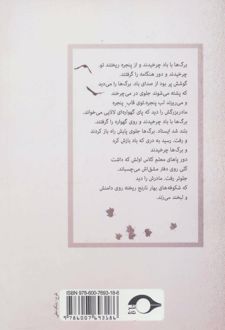 برگ‌ها با باد چرخیدند و از پنجره ریختند تو.
چرخیدند و دور هنگامه را گرفتند.
گوشش پر بود از صدای باد. برگ‌ها را می‌دید
که پشته می‌شوند جلوی در می‌چرخند
و می‌ریزند لب پنجره.توی قاب پنجره
مادربزرگش را دید که پای گهواره‌ای لالایی می‌خواند.
برگ‌ها با باد چرخیدند و روی گهواره را گرفتند.
بلند شد ایستاد. برگ‌ها جلوی پایش راه باز کردند
و رفت. رسید به دری که باد بازش کرد
و برگ‌ها چرخیدند
دور پاهای معلم کلاس اولش که داشت
گلی روی دفتر مشق‌اش می‌چسباند.
جلوتر رفت. مادرش را دید
که شکوفه‌های بهار نارنج ریخته روی دامنش
و لبخند می‌زند.
ISBN 978-600-7693-18-6
9786007693186